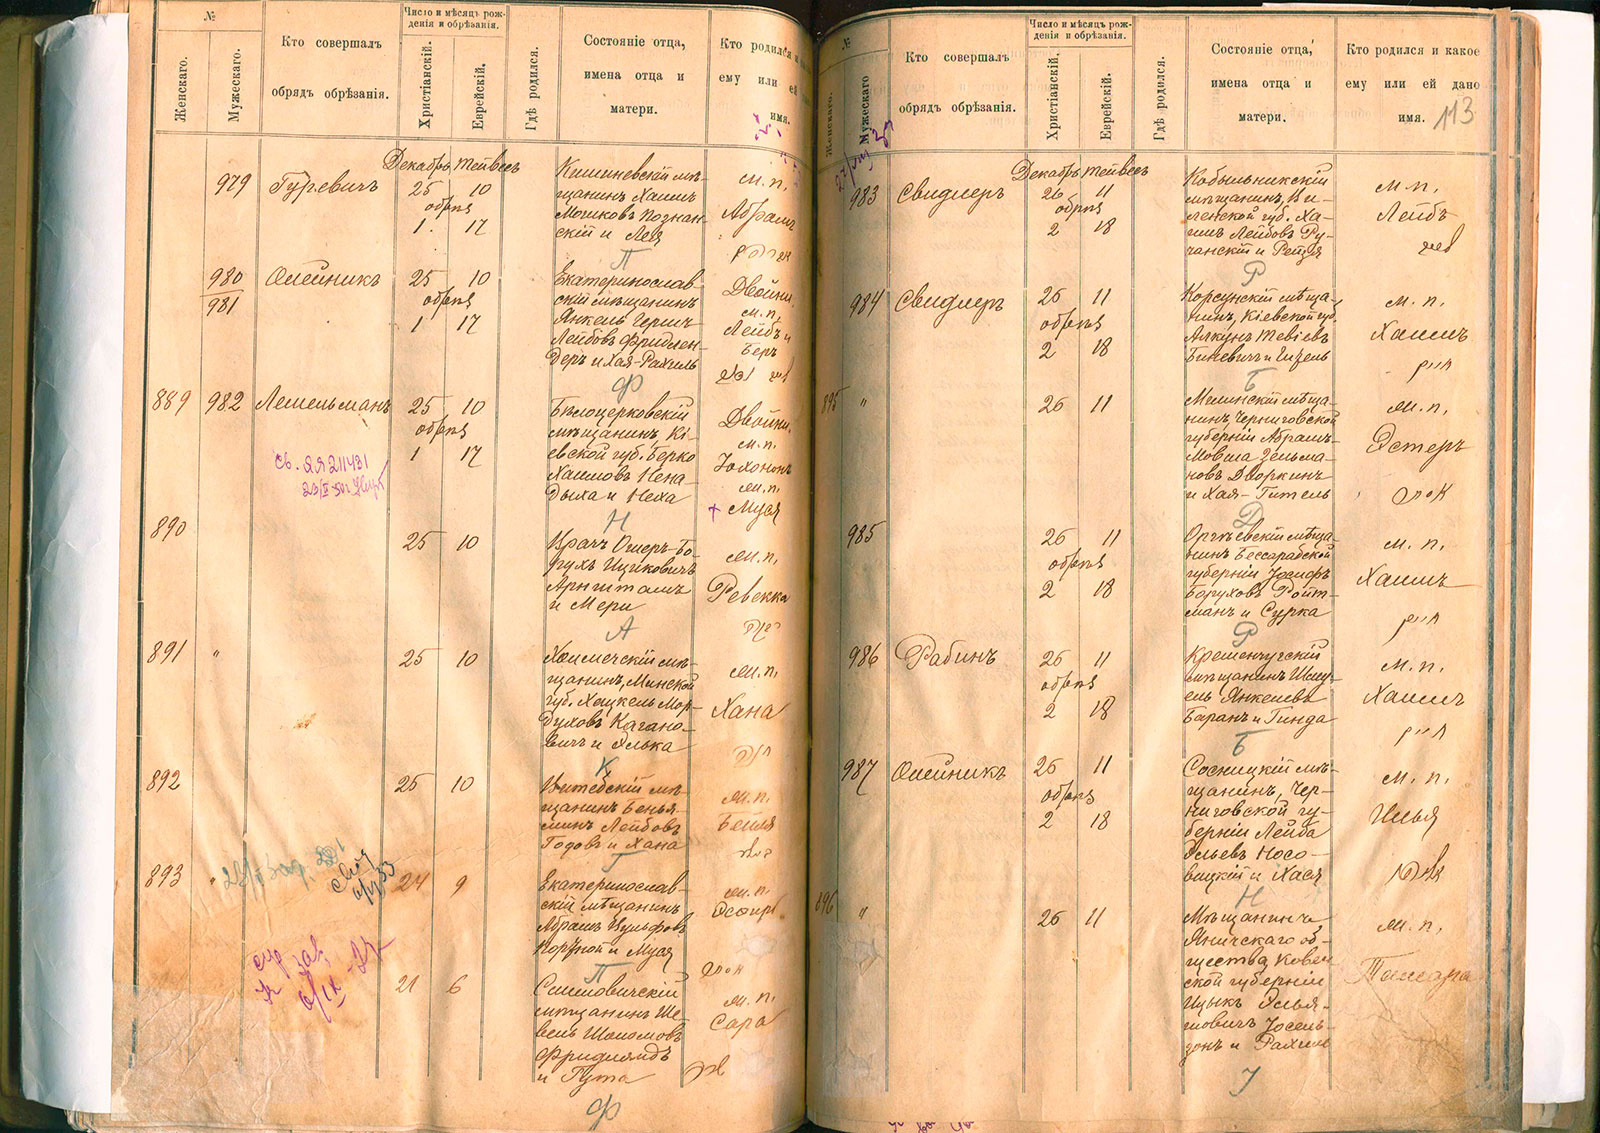 №
Женскаго.
Мужескаго.
Кто совершалъ
обрядъ обрѣзанія.
Число и мѣсяцъ рож-
денія и обрѣзанія.
Христіанскій.
Еврейскій.
Гдѣ родился.
Состояніе отца,
имена отца и
матери.
Кто родился и
ему или ей
имя.
Декабрь Тейвесъ
979 Гуревичъ 25 10
обрѣз
1 17
Кишиневскій мѣ-
щанинъ Хаимъ
Мошковъ Познан-
скій и Лея
м.п.
Абрамъ
П
980
981
Олейникъ 25 10
обрѣз
1 17
Екатеринослав-
скій мѣщанинъ
Янкель Герш-
Лейбовъ Фридлен-
деръ и Хая-Рахиль
Двойни
м.п.
Лейбъ и
Беръ
Ф
889 982 Лешельманъ 25 10
обрѣз
1 17
Бѣлоцерковскій
мѣщанинъ, Кі-
евской губ. Берко
Хаимовъ Нена-
дыха и Неха
Двойни
м.п.
Іохононъ
м.п.
+ Муся
Н
890 25 10
Врачъ Ошеръ-Бо-
рухъ Ициковичъ
Арнштамъ
и Мери
м.п.
Ревекка
А
891 " 25 10
Хоимечскій мѣ-
щанинъ, Минской
губ. Хацкель Мор-
духовъ Кагано-
вичъ и Элька
м.п.
Хана
К
892 25 10
Витебскій мѣ-
щанинъ Бенья-
минъ Лейбовъ
Годовъ и Хана
м.п.
Бейля
Г
893 " 24 9
Екатеринослав-
скій мѣщанинъ
Абрамъ Вульфовъ
Портной и Муся
м.п.
Эсфирь
П
21 6
Симовичскій
мѣщанинъ Ше-
вель Шоломовъ
Фридляндъ
и Гута
м.п.
Сара
Ф
№
Женскаго.
Мужескаго
Кто совершалъ
обрядъ обрѣзанія.
Число и мѣсяцъ рож-
денія и обрѣзанія.
Христіанскій.
Еврейскій.
Гдѣ родился.
Состояніе отца,
имена отца и
матери.
Кто родился и какое
ему или ей дано
имя.
113
Декабрь Тейвесъ
983 Свидлеръ 26 11
обрѣз
2 18
Кобыльникскій
мѣщанинъ, Ви-
ленской губ. Ха-
имъ Лейбовъ Ру-
чанскій и Рейзя
м.п.
Лейбъ
Р
984 Свидлеръ 26 11
обрѣз
2 18
Корсунскій мѣща-
нинъ, Кіевской губ.
Алкунъ Тевіевъ
Биневичъ и Гизель
м.п.
Хаимъ
Б
895 " 26 11
Мглинскій мѣща-
нинъ, Черниговской
губерніи Абрамъ-
Мовша Зельма-
новъ Дворкинъ
и Хая-Гитель
м.п.
Эстеръ
Д
985 26 11
обрѣз
2 18
Оргѣевскій мѣща-
нинъ Бессарабской
губерніи Іосифъ
Боруховъ Ройт-
манъ и Сурка
м.п.
Хаимъ
Р
986 Рабинъ 26 11
обрѣз
2 18
Кременчугскій
мѣщанинъ Шму-
ель Янкелевъ
Баранъ и Гинда
м.п.
Хаимъ
Б
987 Олейникъ 26 11
обрѣз
2 18
Сосницкій мѣ-
щанинъ, Чер-
ниговской гу-
берніи Лейба
Эльевъ Носо-
вицкій и Хася
м.п.
Илья
Н
896 " 26 11
Мѣщанинъ
Яничскаго об-
щества, Ковен
ской губерніи
Ицыкъ Элья-
шовичъ Іосель-
зонъ и Рахиль
м.п.
Тамара
І